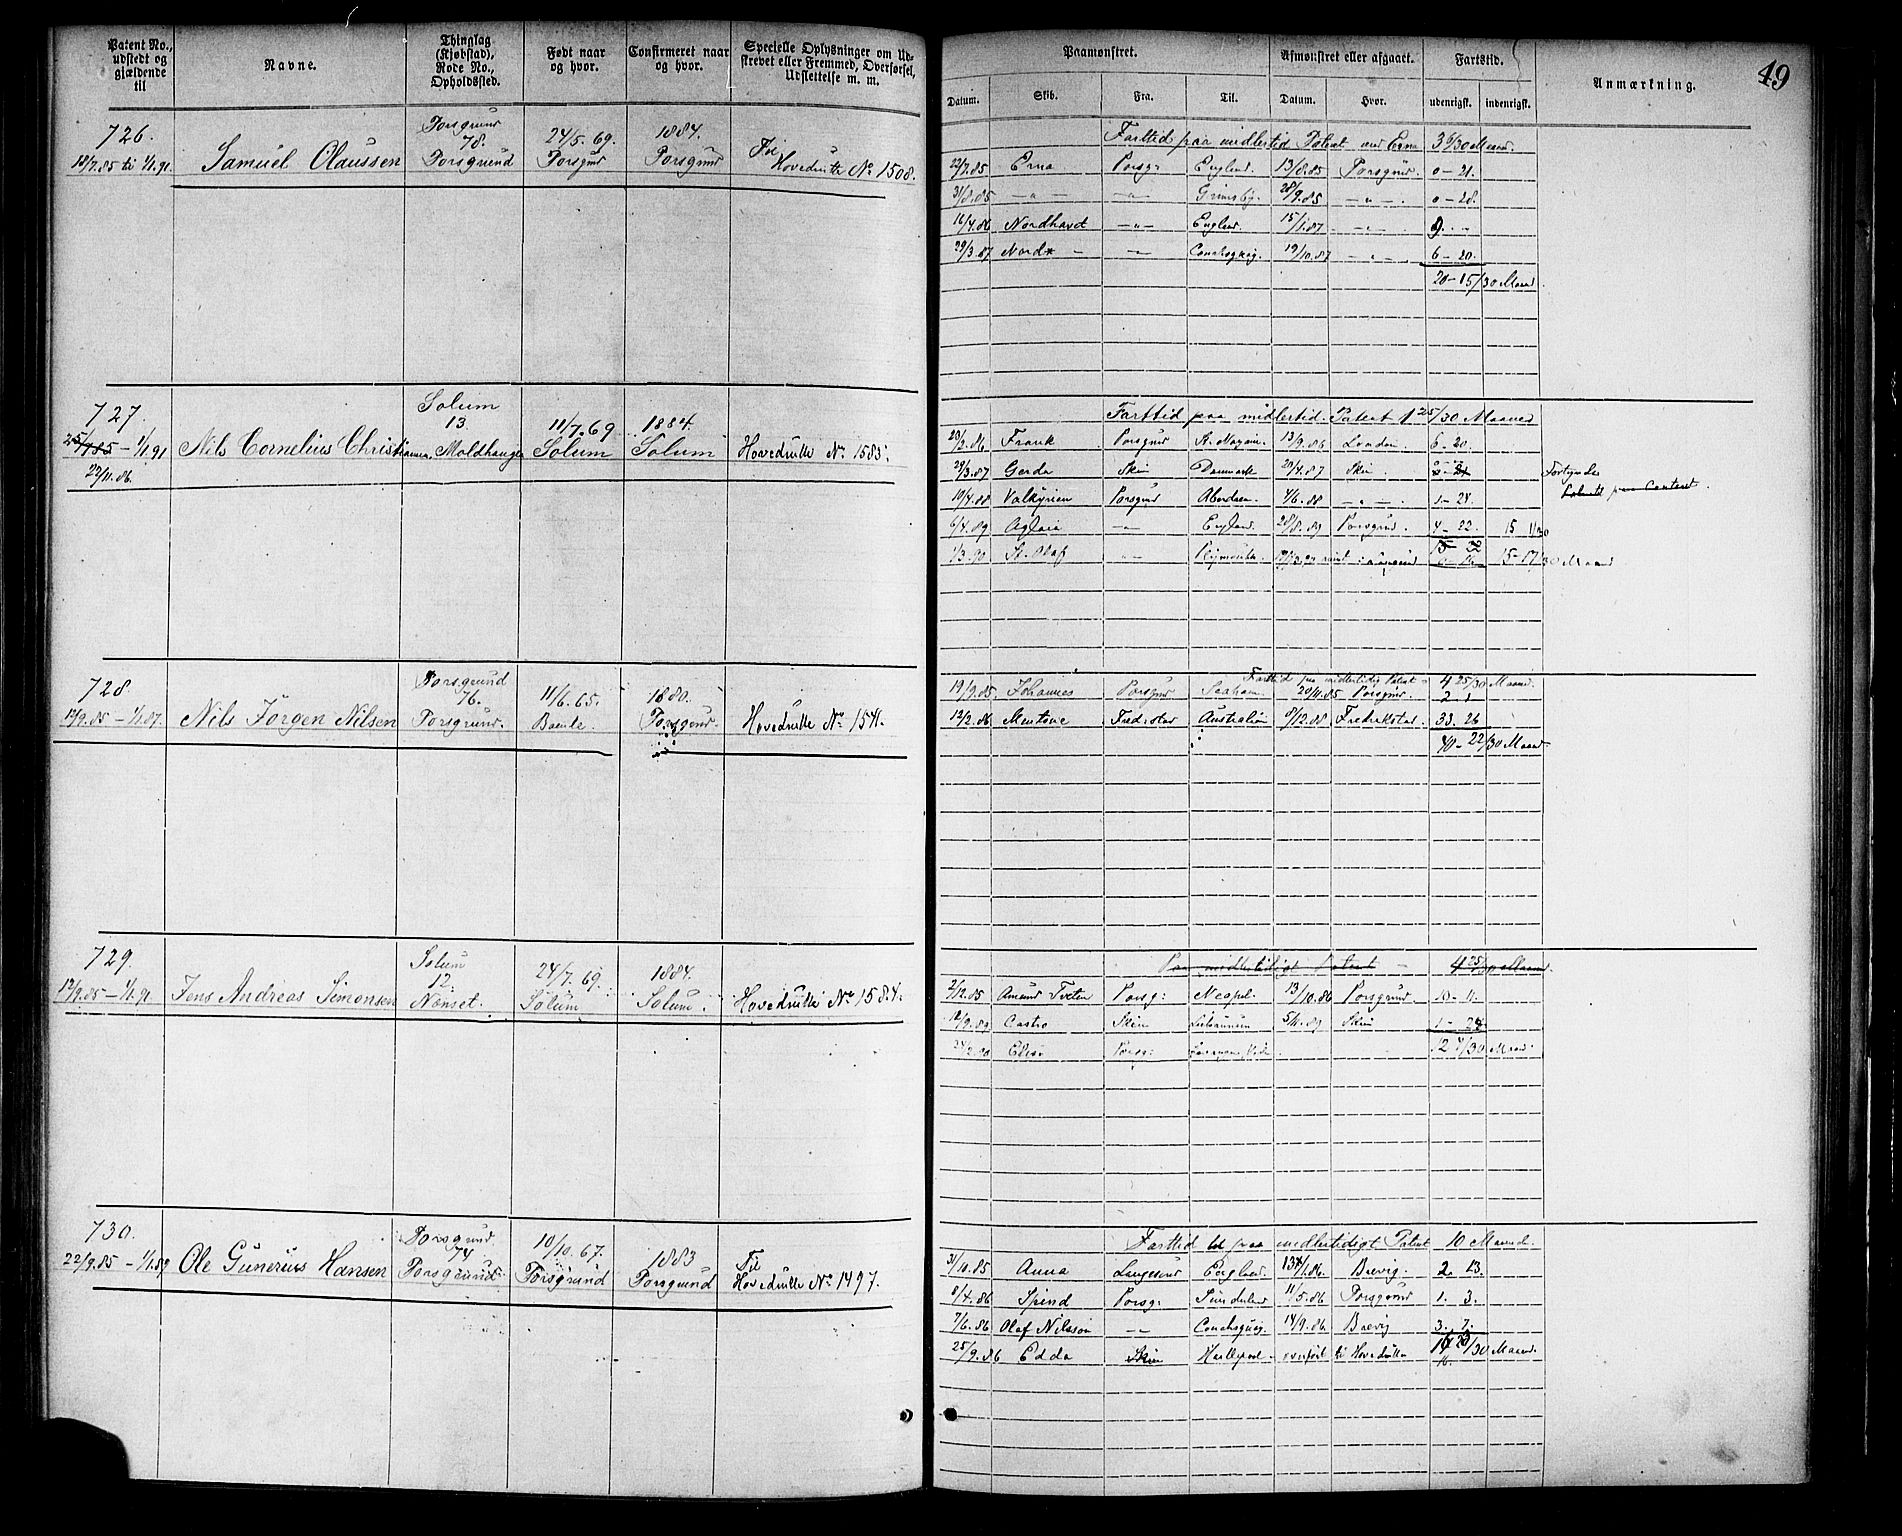 Patent No., udstedt og gjældende til
Navne.
Thinglag (Kjøbstad), Rode No., Opholdssted.
Født naar og hvor.
Confirmeret naar og hvor.
Specielle Oplysninger om Udstrevet eller Fremmed, Overførsel, Udslettelse m. m.
Paamønstret.
Afmønstret eller afgaaet.
Fartstid.
Anmærkning.
49
Datum. Skib. Fra. Til. Datum. Hvor. udenrigsk. indenrigsk.
726.
13/7.85 til 1/1.91.
Samuel Olaussen
Porsgrund
78.
Porsgrund
24/5.69.
Porsgrud
1884.
Porsgrund
Til
Hovedrulle No 1508.
Farttid paa midlertid Patent med Erna 3 6/30 Maaned.
22/7.85 Erna Porsgr England. 13/8.85 Porsgrund. 0-21.
31/8.85 -„- -„- Grimsby. 28/9.85 -„-. 0-28.
16/4.86 Nordhavet -„- England. 15/1.87 -„- 9.--
29/3.87 Nord - -„- 19/10.87 -„- 6-20.
20-15/30 Maaned.
727.
22/11.86. - 1/1.91
Nils Cornelius Christiansen
Solum
13.
Moldhaugen
11/7.69
Solum
1884.
Solum
Hovedrulle No. 1583.
Farttid paa midlertid. Patent 1 25/30 Maaned
20/2.86 Frank Porsgrund 13/9.86 London. 6-20.
29/3.87 Gerda Skien Danmark 20/4.87 Skien.
19/4.88 Valkyrien Porsgrund Aberdeen. 4/6.88 -„-. 1-24.
6/4.89 Aglaia -„- England. 28/8.89 Porsgrund. 4-22. 15 11/30
1/3.90 St. Olaf -„- Plymouth. 15-17/30 Maaned
728.
12/9.85 - 1/1.87.
Nils Jörgen Nilsen
Porsgrund
76.
Porsgrund.
11/6.65.
Bamle.
1880.
Porsgrund.
Hovedrulle No. 1541.
Farttid paa midlertidig Patent - 4 25/30 Maaned
19/9.85. Johannes Porsgrund Seaham. 20/11.85 Porsgrund. 2 1
12/2.86 Mentone Fredrstad Australien 8/12.88 Fredrikstad. 33. 26
40-22/30 Maaned
729.
12/9.85 - 1/1.91.
Jens Andreas Simonsen
Solum
12.
Nænset.
24/7.69.
Solum
1884.
Solum.
Hovedrulle No. 1584.
Paa midlertidigt Patent - 4 25/30 Maaned.
2/12.85 Amund Tveten Porsg: Neapel. 13/10.86 Porsgrund. 10-11.
12/9.89 Castro Skien 5/11.89 Skien 1-24
24/2.90 Elise Porsg: 12 4/30 Maaned.
730.
22/9.85 - 1/1.89
Ole Gunerius Hansen
Porsgrund.
74
Porsgrund
10/10.67.
Porsgrund
1883
Porsgrund
Til
Hovedrulle No. 1497.
Farttid paa midlertidigt Patent 10 Maaned.
31/10.85 Anna Langesund England 13/1.86. Brevig. 2. 13.
8/4.86 Spind Porsg: Sunderland 11/5.86 Porsgrund 1. 3.
7/6.86 Olaf Nilsson -„- 14/9.86. Brevig 3. 7.
25/9.86 Edda Skien Hartlepool. overført til Hovedrullen 16 23/30 Maaned.